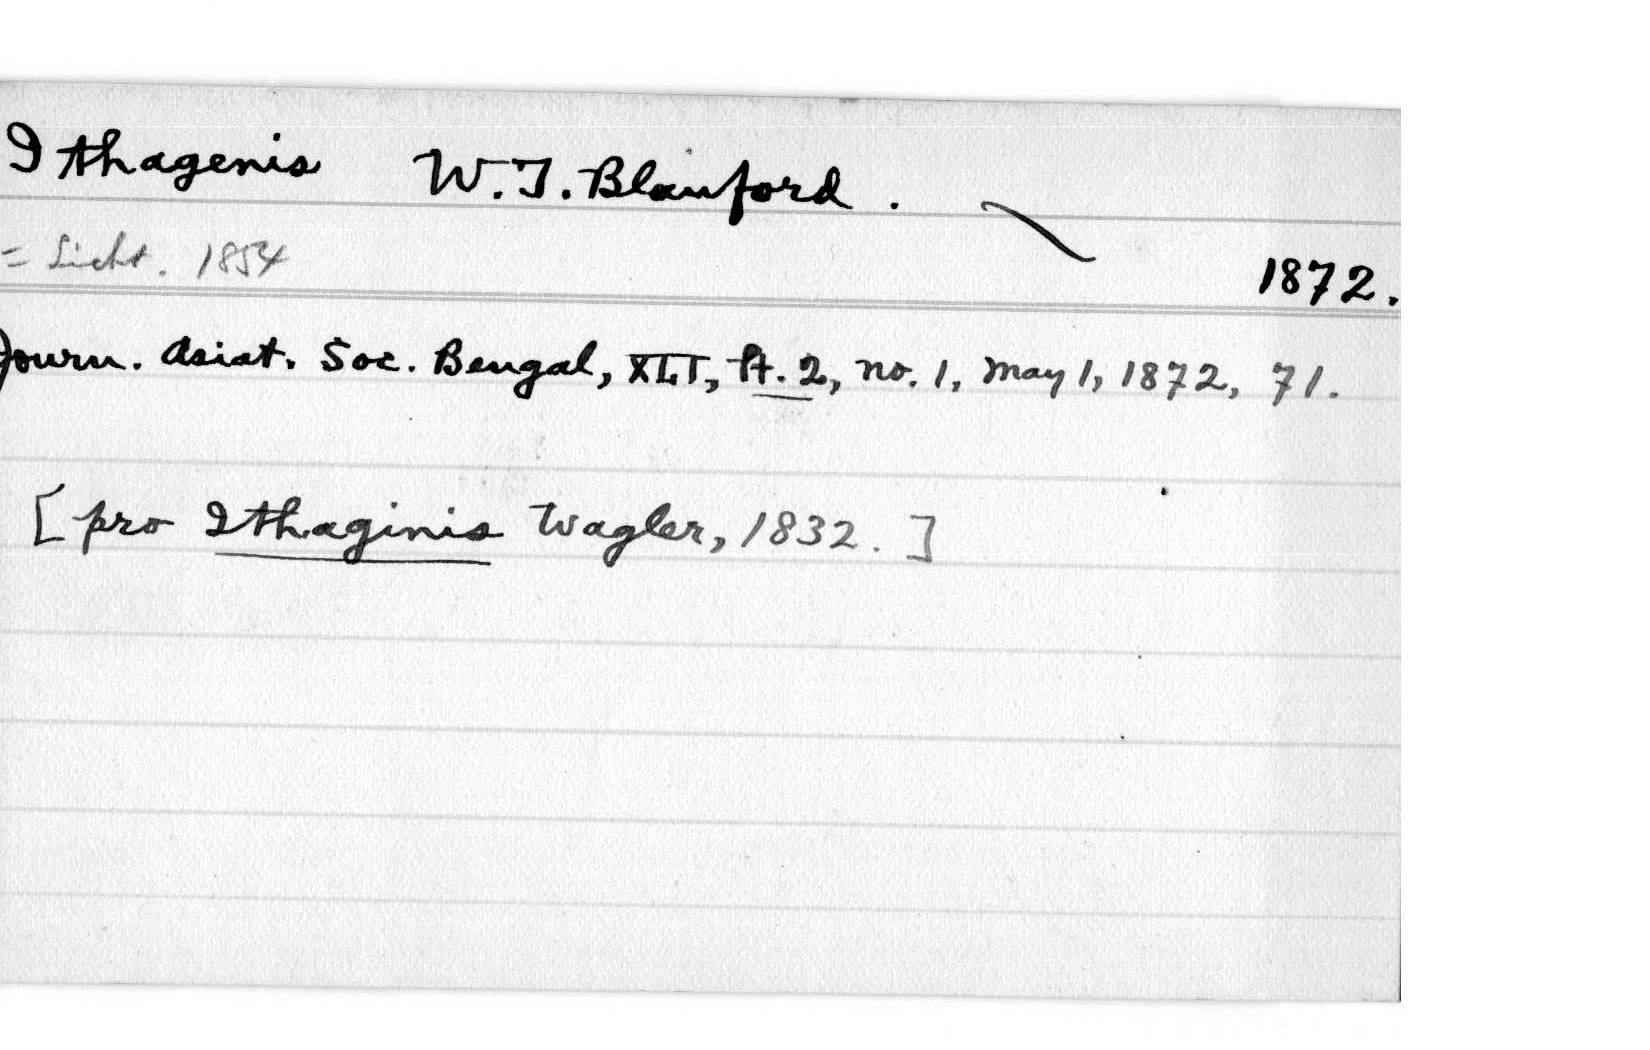 Ithagenis W.T. Blanford.
= Licht. 1854
1872.
Journ. Asiat. Soc. Bengal, XLI, Pt. 2, no. 1, May 1, 1872, 71.
[pro Ithaginis Wagler, 1832.]